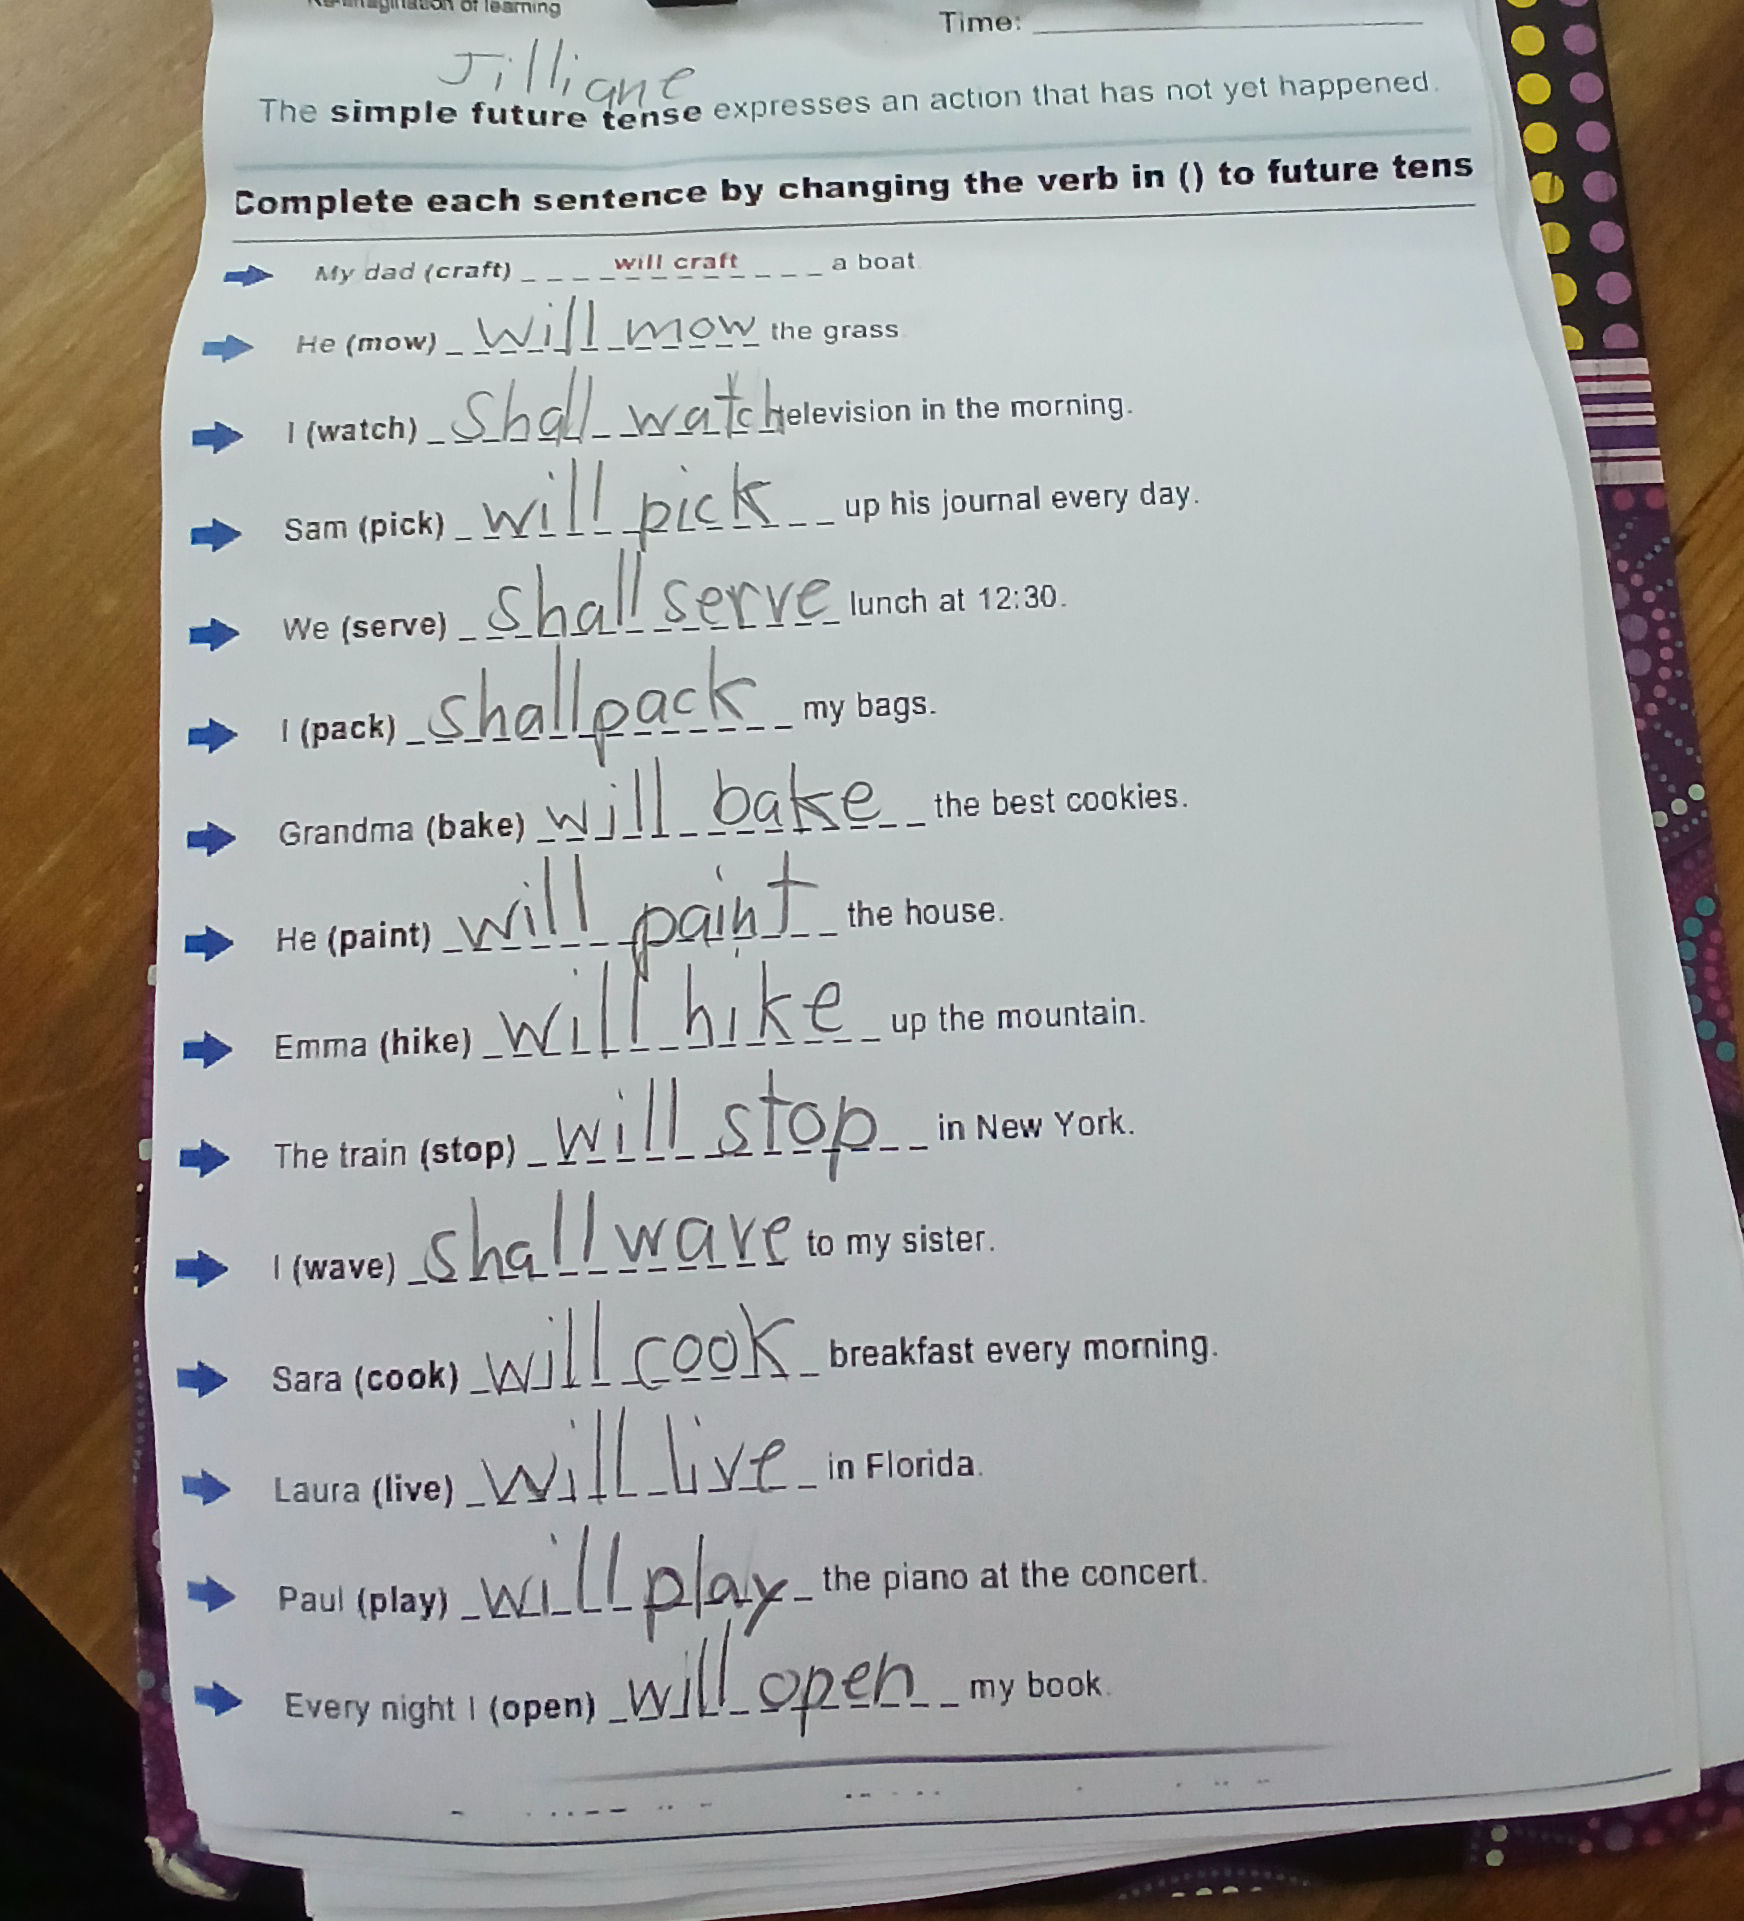 Re-imagination of learning
Time:
Jilliane
The simple future tense expresses an action that has not yet happened.
Complete each sentence by changing the verb in () to future tens
My dad (craft) will craft a boat
He (mow) will mow the grass
I (watch) shall watch television in the morning.
Sam (pick) will pick up his journal every day.
We (serve) shall serve lunch at 12:30.
I (pack) shall pack my bags.
Grandma (bake) will bake the best cookies.
He (paint) will paint the house.
Emma (hike) will hike up the mountain.
The train (stop) will stop in New York.
I (wave) shall wave to my sister.
Sara (cook) will cook breakfast every morning.
Laura (live) will live in Florida.
Paul (play) will play the piano at the concert.
Every night I (open) will open my book.